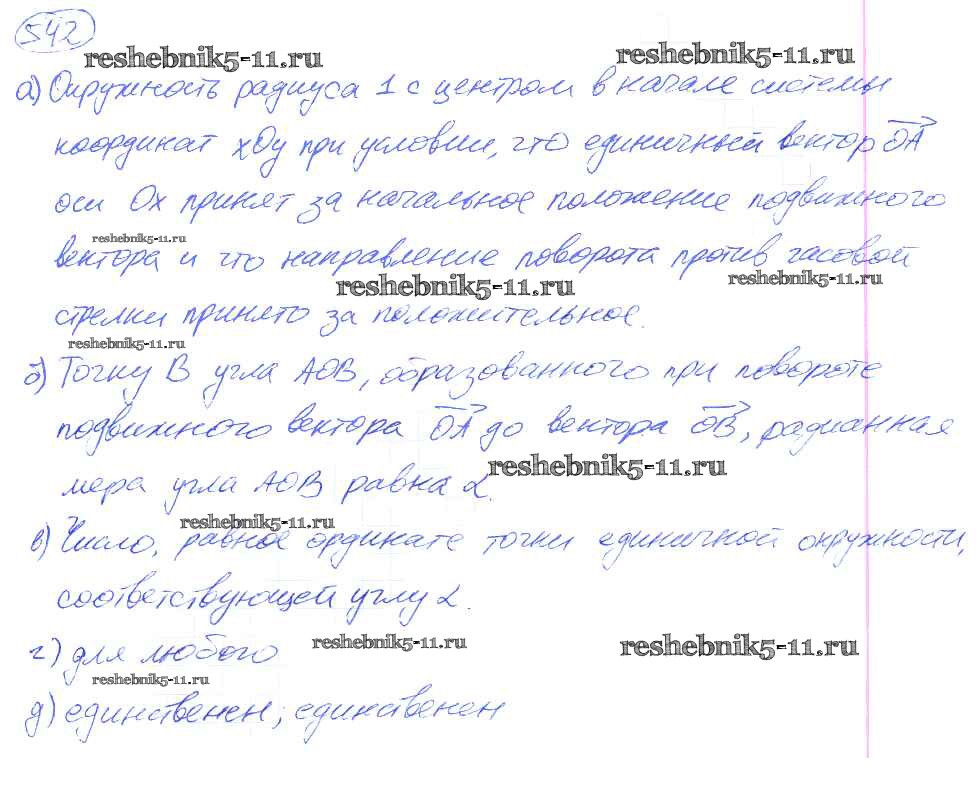 542
reshebnik5-11.ru
reshebnik5-11.ru
а) Окружность радиуса 1 с центром в начале системы
координат xOy при условии, что единичный вектор OA
оси Ox принят за начальное положение подвижного
reshebnik5-11.ru
вектора и что направление поворота против часовой
reshebnik5-11.ru
reshebnik5-11.ru
стрелки принято за положительное.
reshebnik5-11.ru
б) Точку B угла AOB, образованного при повороте
подвижного вектора OA до вектора OB, радианная
reshebnik5-11.ru
мера угла AOB равна α.
reshebnik5-11.ru
в) Число, равное ординате точки единичной окружности,
соответствующей углу α.
reshebnik5-11.ru
reshebnik5-11.ru
г) для любого
reshebnik5-11.ru
д) единственен; единственен